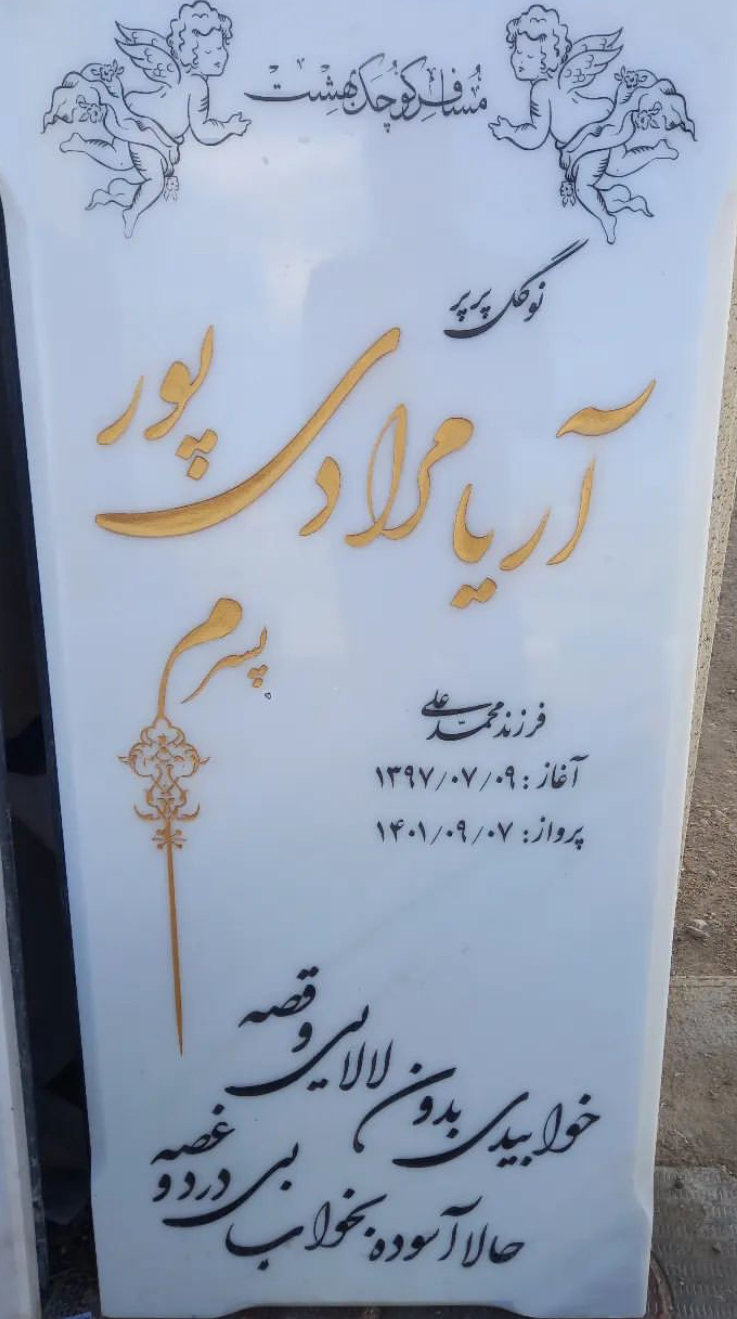 مسافر کوچک بهشت
نوگل پرپر
آریا مرادی پور
پسرم
فرزند محمد علی
آغاز : ۱۳۹۷/۰۷/۰۹
پرواز : ۱۴۰۱/۰۹/۰۷
خوابیدی بدون لالایی و قصه
حالا آسوده بخواب بی درد و غصه